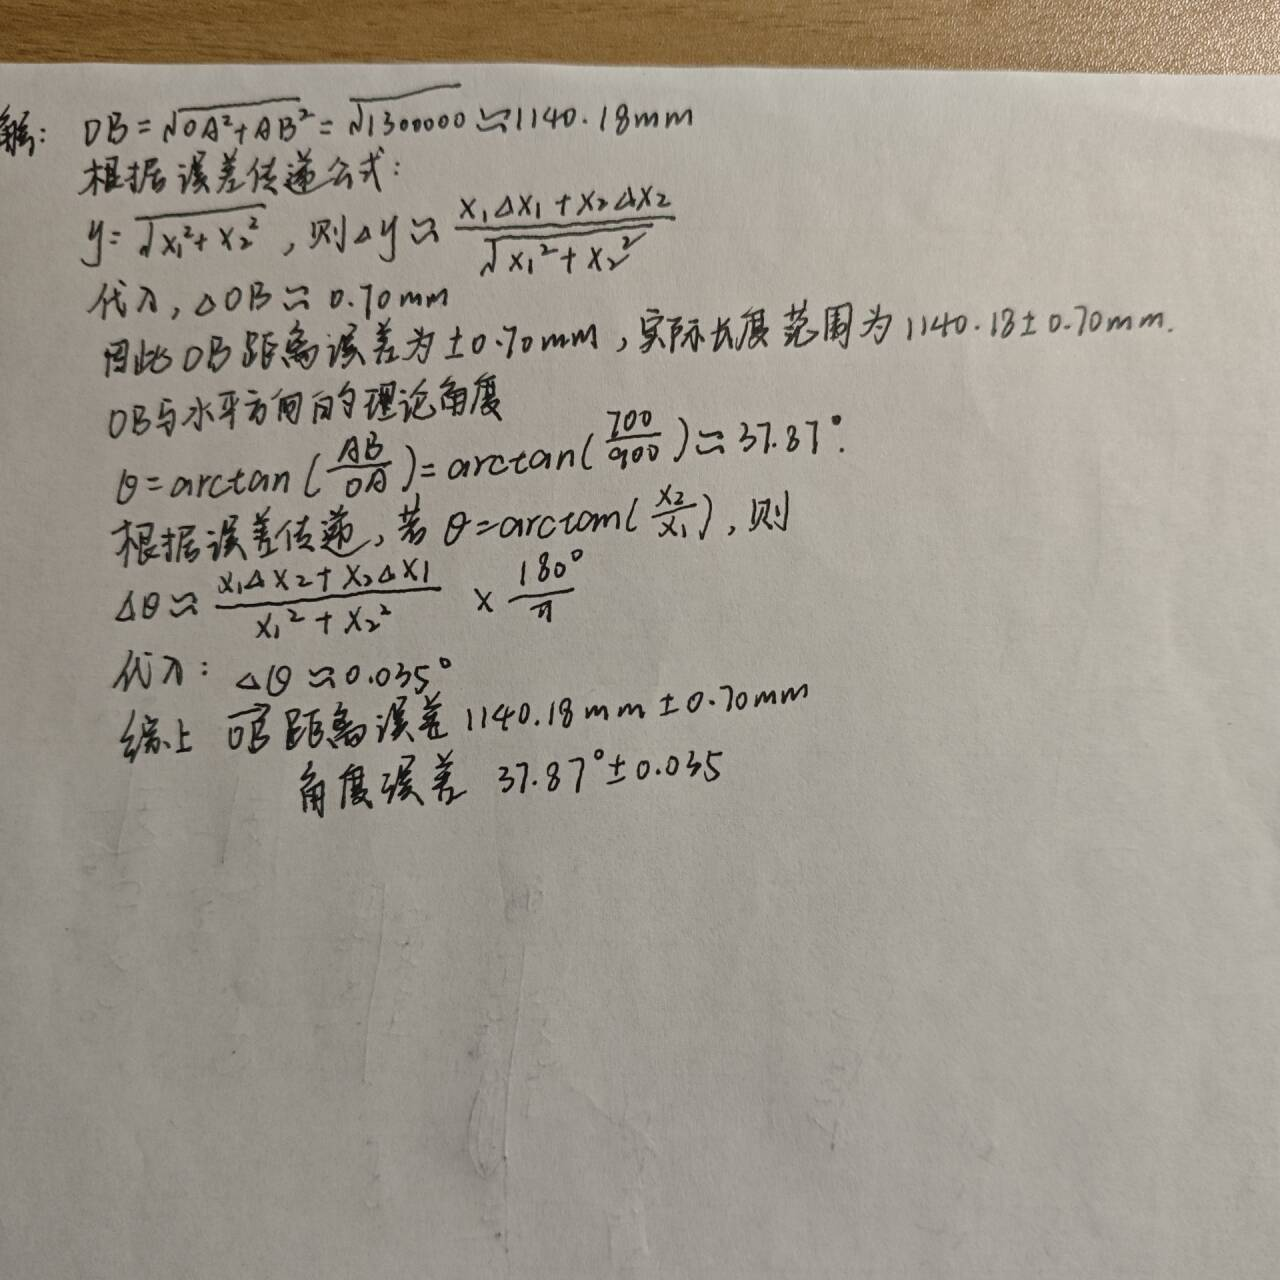 解: OB=√OA²+AB²=√1300000≈1140.18mm
根据误差传递公式:
y=√x₁²+x₂², 则Δy≈ x₁Δx₁+x₂Δx₂/√x₁²+x₂²
代入, ΔOB≈0.70mm
因此OB距离误差为±0.70mm, 实际长度范围为1140.18±0.70mm.
OB与水平方向的理论角度
θ=arctan(AB/OA)=arctan(700/900)≈37.87°.
根据误差传递, 若θ=arctan(x₂/x₁), 则
Δθ≈ x₁Δx₂+x₂Δx₁/x₁²+x₂² × 180°/π
代入: Δθ≈0.035°
综上 OB距离误差 1140.18mm±0.70mm
角度误差 37.87°±0.035